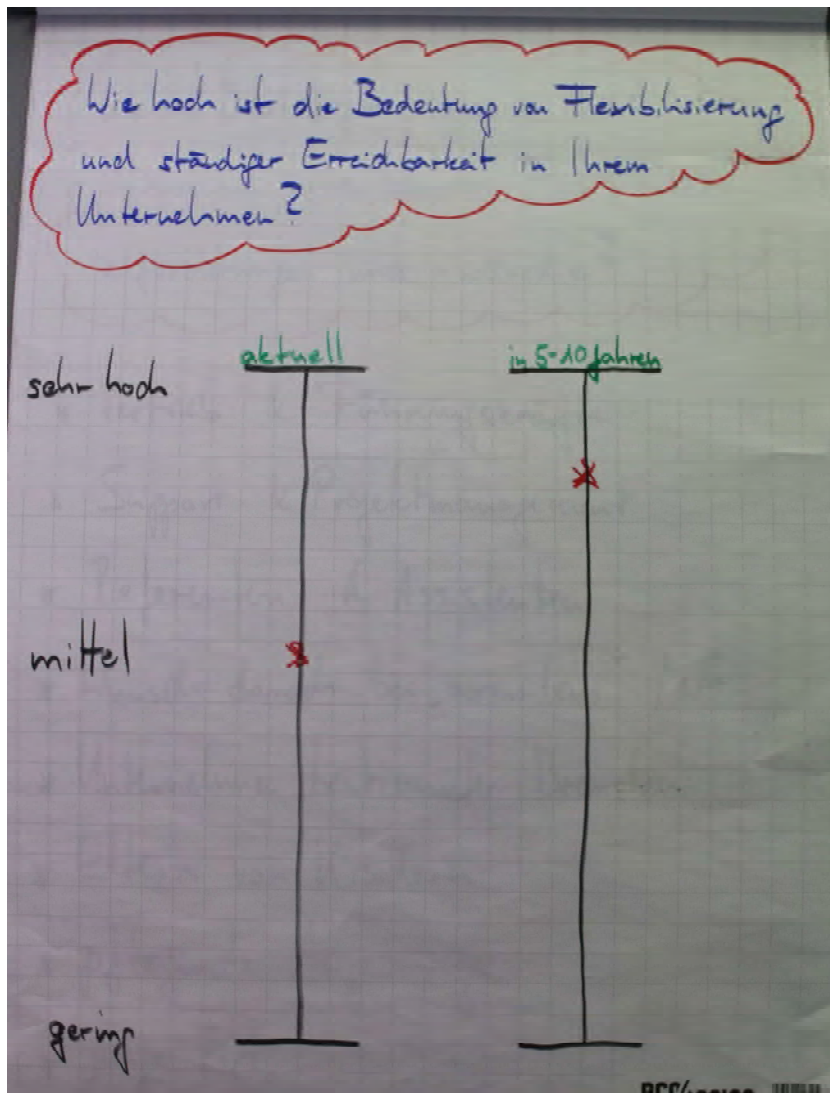 Wie hoch ist die Bedeutung von Flexibilisierung
und ständiger Erreichbarkeit in Ihrem
Unternehmen?
aktuell
in 5-10 Jahren
sehr hoch
mittel
gering